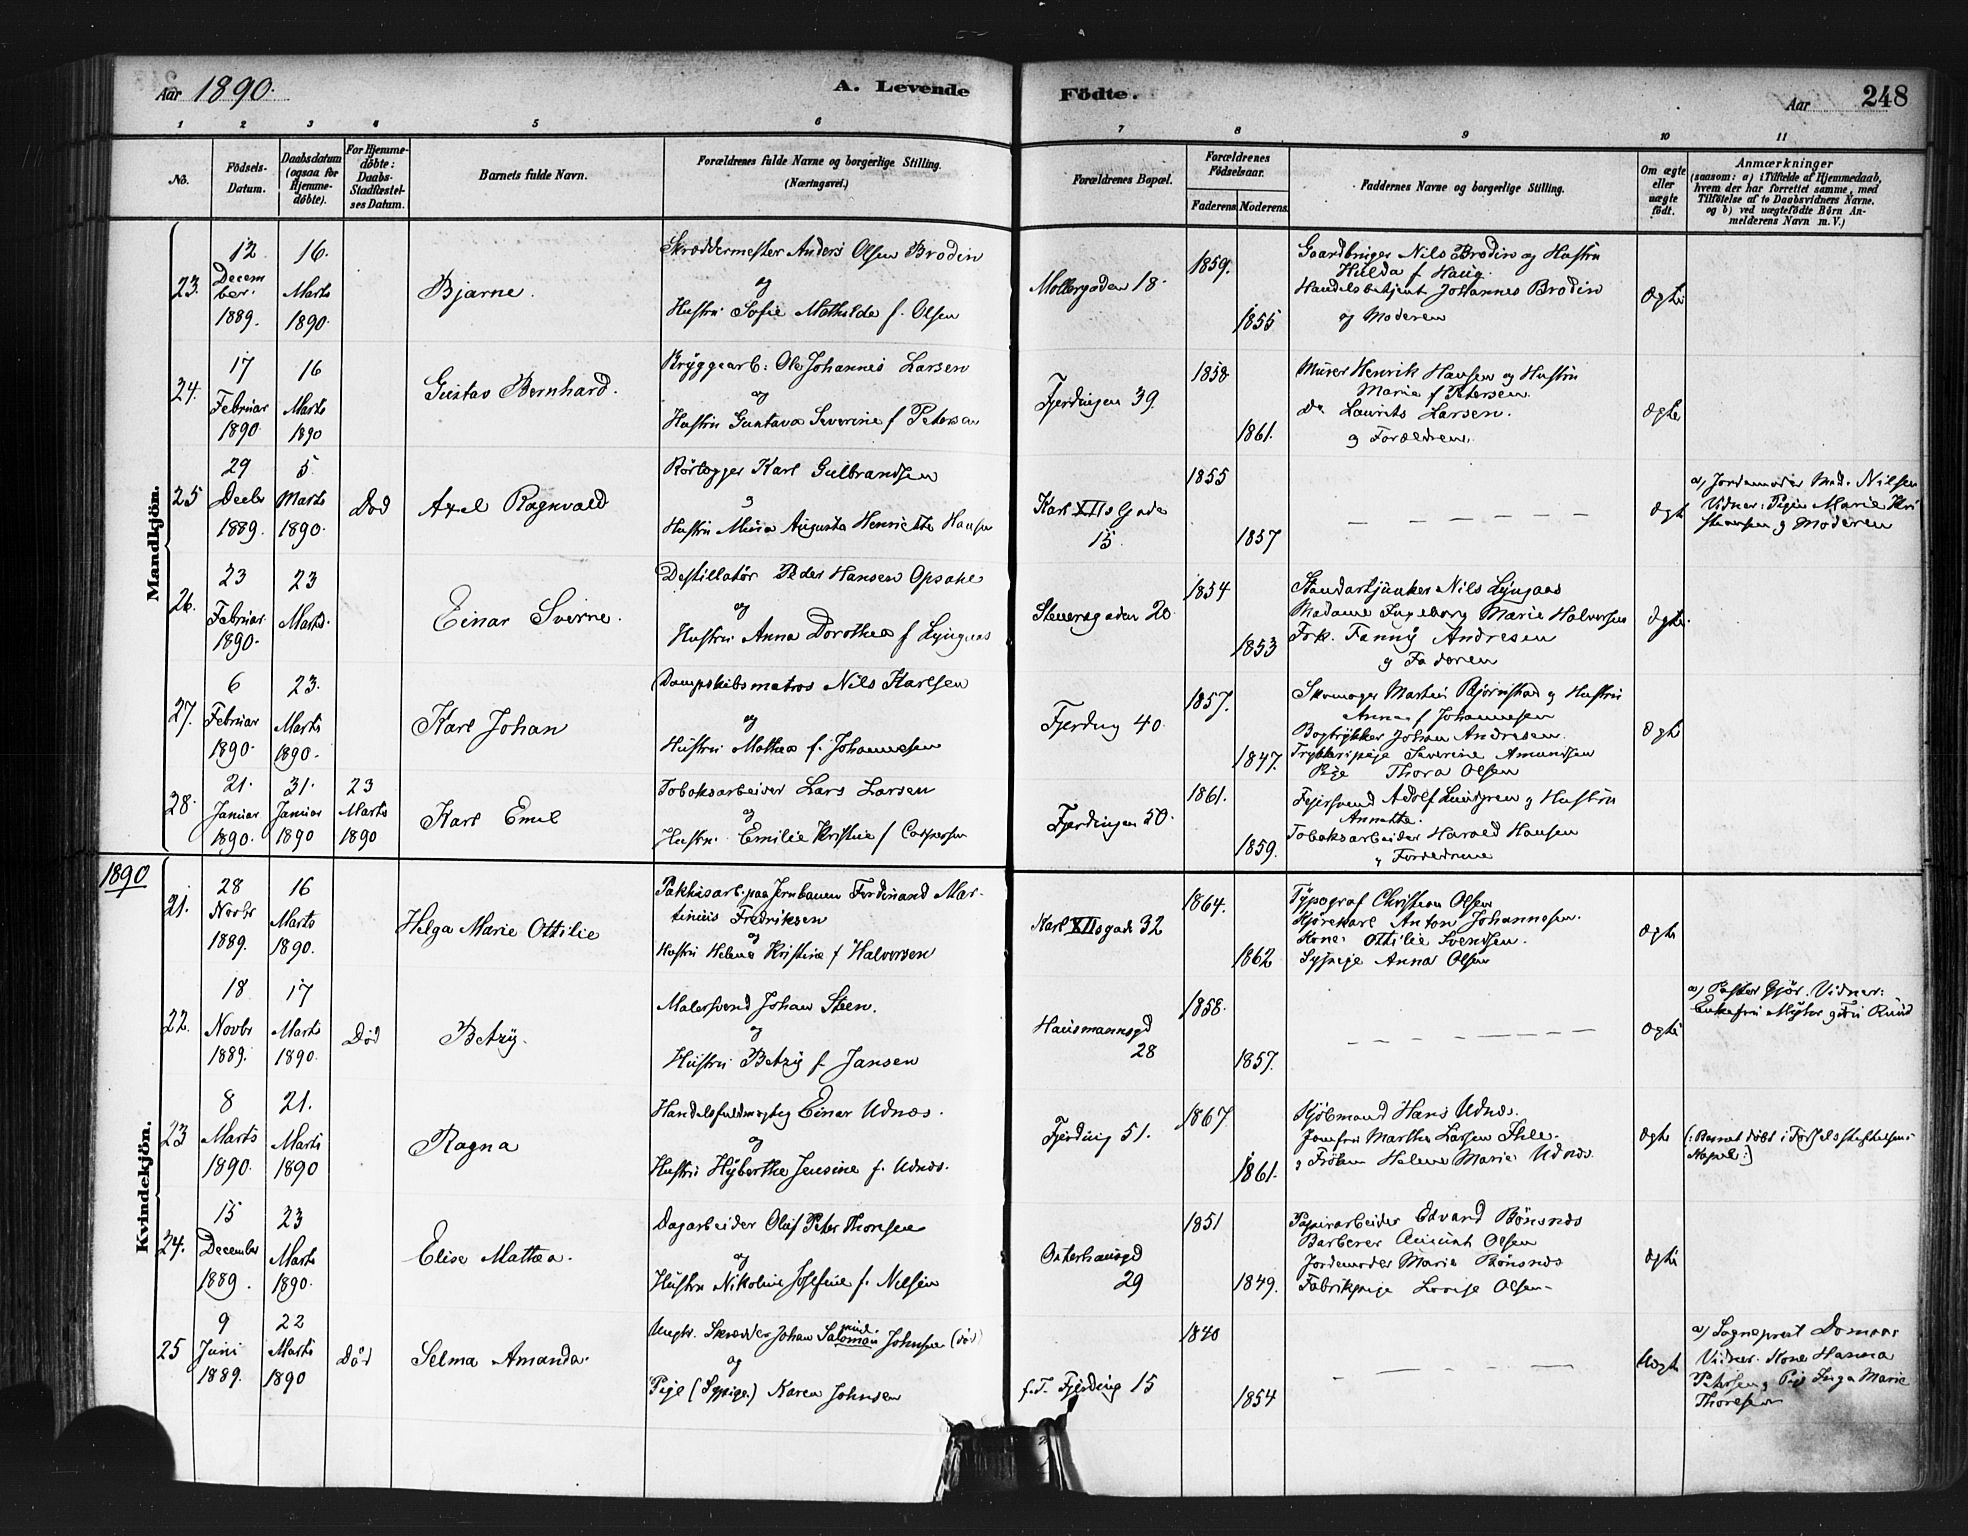 Aar 1890. A. Levende Fødte. Aar 248
1 2 3 4 5 6 7 8 9 10 11
No.
Födsels-Datum.
Daabsdatum (ogsaa for Hjemmedöbte).
For Hjemmedöbte: Daabs-Stadfæstelses Datum.
Barnets fulde Navn.
Forældrenes fulde Navne og borgerlige Stilling. (Næringsvei.)
Forældrenes Bopæl.
Forældrenes Födselsaar.
Faderens. Moderens.
Faddernes Navne og borgerlige Stilling.
Om ægte eller uægte födt.
Anmærkninger
(saasom: a) i Tilfælde af Hjemmedaab,
hvem der har forrettet samme, med
Tilföielse af to Daabsvidners Navne.
og b) ved uægtefödte Börn An-
melderens Navn m.V.)
Mandkjön.
23.
12 December 1889.
16. Marts 1890.
Bjarne.
Skræddermester Anders Olsen Brodin
og
Hustru Sofie Mathilde f. Olsen
Møllergaden 18.
1859.
1855
Gaardbruger Nils Brodin og Hustru
Hulda f Haug.
Handelsbetjent Johannes Brodin
og Moderen
Ægte
24.
17 Februar 1890
16 Marts 1890
Gustav Bernhard.
Bryggearb: Ole Johannes Larsen
og
Hustru Gustava Severine f Petersen
Fjerdingen 39.
1858
1861.
Murer Henrik Hansen og Hustru
Marie f Petersen
Do Laurits Larsen.
og Forældrene.
Ægte
25
29 Decbr 1889.
5. Marts 1890.
Død
Axel Ragnvald
Rørlægger Karl Gulbrandsen
og
Hustru Maria Augusta Henriette Hansen
Karl XIIs Gade
15.
1855
1857
Ægte
a) Jordemoder Mad. Nilsen
Vidner: Pigen Marie Kri
stiansen og Moderen
26.
23 Februar 1890.
23 Marts.
Einar Sverre.
Destillatør Peder Hansen Opsahl
og
Hustru Anna Dorothea f Lyngaas
Steenersgaden 20
1854
1853
Standartjunker Nils Lyngaas
Madame Ingeborg Marie Halvorsen
Frk. Fanny Andresen
og Faderen
Ægte.
27.
6 Februar 1890.
23. Marts 1890.
Karl Johan
Dampskibsmatros Nils Karlsen
og
Hustru Mathea f. Johannesen
Fjerding 40.
1857.
1847.
Skomager Martin Bjørnstad og Hustru
Anna f Johannesen
Bogtrykker Johan Andresen.
Trykkeripige Severine Amundsen
Pige Thora Olsen
Ægte
28.
21. Januar 1890.
31. Januar 1890
23 Marts 1890
Karl Emil
Tobaksarbeider Lars Larsen
og
Hustru Emilie Kristine f Caspersen
Fjerdingen 50.
1861.
1859.
Feiersvend Adolf Lundgren og Hustru
Annette.
Tobaksarbeider Harald Hansen
og Forældrene
1890
Kvindekjön.
21.
28 Novbr 1889.
16 Marts 1890.
Helga Marie Ottilie
Pakhusarb. paa Jernbanen Ferdinand Mar-
tinius Fredriksen
og
Hustru Helene Kristine f Halvorsen
Karl XIIsgade 32
1864.
1862
Typograf Christian Olsen
Kjørekarl Anton Johannesen.
Kone Ottilie Svendsen.
Sypige Anna Olsen
Ægte
22.
18 Novbr 1889.
17 Marts 1890.
Død
Betzy.
Malersvend Johan Steen.
og
Hustru Betzy f. Jansen
Hausmannsgd
28
1858.
1857.
Ægte
a) Pastor Gjør. Vidner:
Enkefru Myhre og Fru Ruud
23
8 Marts 1890.
21. Marts 1890
Ragna
Handelsfuldmægtig Einar Udnæs.
og
Hustru Hyberthe Jensine f. Udnæs.
Fjerding 51.
1867
1861.
Kjøbmand Hans Udnæs.
Jomfru Marthe Larsen Ihle.
og Frøken Helene Marie Udnæs.
Ægte
(: Barnet døbt i Fødselsstiftelsens
Kapel:)
24.
15 December 1889.
23 Marts 1890.
Elise Mathea.
Dagarbeider Oluf Peter Thoresen
og
Hustru Nikoline Josefine f. Nilsen
Osterhausgd
29
1851
1849.
Papirarbeider Edvard Bønsnæs
Barberer August Olsen
Jordemoder Marie Bønsnæs
Fabrikpige Lovise Olsen
Ægte
25
9 Juni 1889.
22 Marts 1890
Død
Selma Amanda.
Ungk. Skrædder Johan Salomon Johnsen (død)
og
Pige (Sypige.) Karen Johnsen
f. T. Fjerding 15
1840
1854
Uægte
a) Sognepræst Domaas
Vidner. Kone Hanna
Petersen og Pig Inga Marie
Thoresen